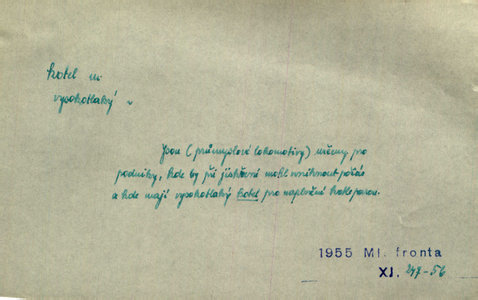 kotel m.
vysokotlaký
Jsou (průmyslové lokomotivy) určeny pro
podniky, kde by při jiskření mohl vzniknout požár
a kde mají vysokotlaký kotel pro naplnění kotle parou.
1955 Ml. fronta
XI. 247-56